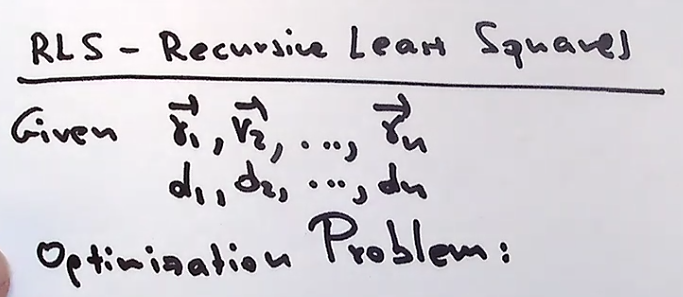 RLS - Recursive Least Squares
Given r⃗₁, r⃗₂, ..., r⃗ₙ
d₁, d₂, ..., dₙ
Optimization Problem: